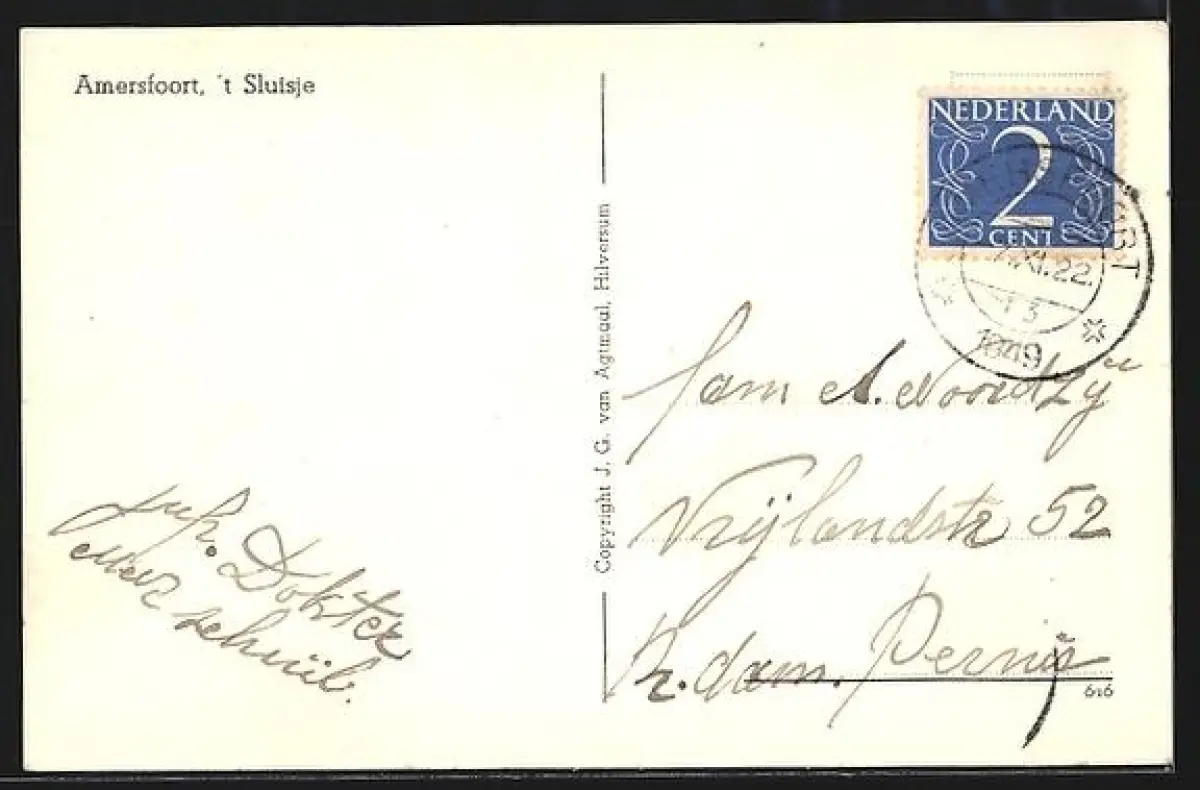 Amersfoort, 't Sluisje
NEDERLAND
2
CENT
XI.22
13
1949
Copyright J. G. van Agtmaal, Hilversum
Fam A. Noordzij
Vrijlandstr 52
R.dam. Pernis
616
Juf. Dokter